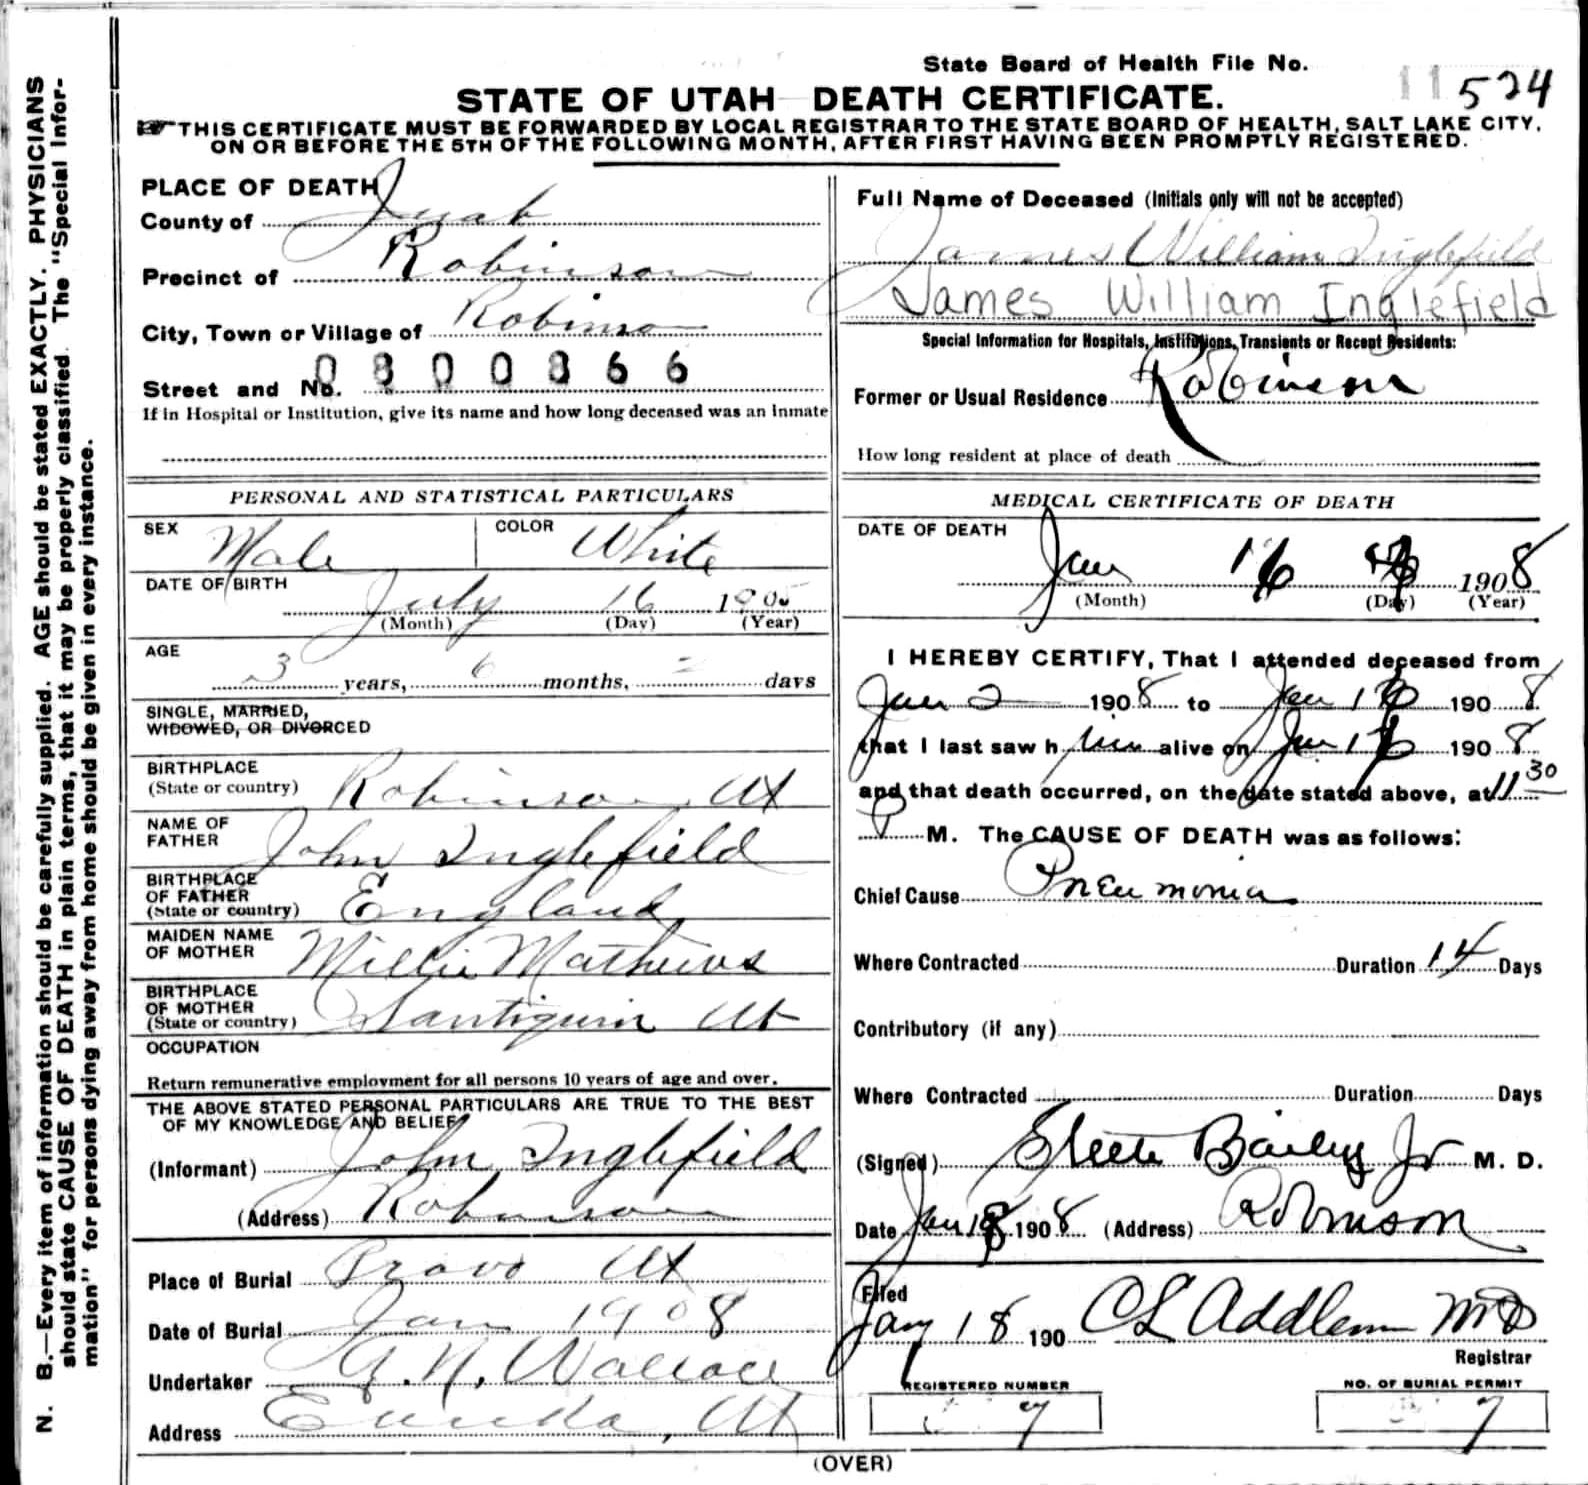 State Board of Health File No. 11524
STATE OF UTAH DEATH CERTIFICATE.
THIS CERTIFICATE MUST BE FORWARDED BY LOCAL REGISTRAR TO THE STATE BOARD OF HEALTH, SALT LAKE CITY,
ON OR BEFORE THE 5TH OF THE FOLLOWING MONTH, AFTER FIRST HAVING BEEN PROMPTLY REGISTERED.
N. B.—Every item of information should be carefully supplied. AGE should be stated EXACTLY. PHYSICIANS
should state CAUSE OF DEATH in plain terms, that it may be properly classified. The "Special Infor-
mation" for persons dying away from home should be given in every instance.
PLACE OF DEATH
County of Juab
Precinct of Robinson
City, Town or Village of Robinson
Street and No. 0300366
If in Hospital or Institution, give its name and how long deceased was an inmate
PERSONAL AND STATISTICAL PARTICULARS
SEX Male COLOR White
DATE OF BIRTH July 16 1905
(Month) (Day) (Year)
AGE
3 years, 6 months, 2 days
SINGLE, MARRIED,
WIDOWED, OR DIVORCED
BIRTHPLACE
(State or country) Robinson, Ut
NAME OF
FATHER John Inglefield
BIRTHPLACE
OF FATHER
(State or country) England
MAIDEN NAME
OF MOTHER Millie Mathews
BIRTHPLACE
OF MOTHER
(State or country) Santiquin Ut
OCCUPATION
Return remunerative employment for all persons 10 years of age and over.
THE ABOVE STATED PERSONAL PARTICULARS ARE TRUE TO THE BEST
OF MY KNOWLEDGE AND BELIEF
(Informant) John Inglefield
(Address) Robinson
Place of Burial Provo Ut
Date of Burial Jan 1908
Undertaker G. N. Wallace
Address Eureka, Ut
Full Name of Deceased (Initials only will not be accepted)
James William Inglefield
James William Inglefield
Special Information for Hospitals, Institutions, Transients or Recent Residents:
Former or Usual Residence Robinson
How long resident at place of death
MEDICAL CERTIFICATE OF DEATH
DATE OF DEATH
Jan 16 1908
(Month) (Day) (Year)
I HEREBY CERTIFY, That I attended deceased from
Jan 2 1908 to Jan 16 1908
that I last saw him alive on Jan 16 1908
and that death occurred, on the date stated above, at 11 30
P M. The CAUSE OF DEATH was as follows:
Chief Cause Pneumonia
Where Contracted Duration 14 Days
Contributory (if any)
Where Contracted Duration Days
(Signed) Steele Bailey Jr M. D.
Date Jan 18 1908 (Address) Robinson
Filed
Jany 18 190 CL Addlem MD
Registrar
REGISTERED NUMBER
7
NO. OF BURIAL PERMIT
7
(OVER)